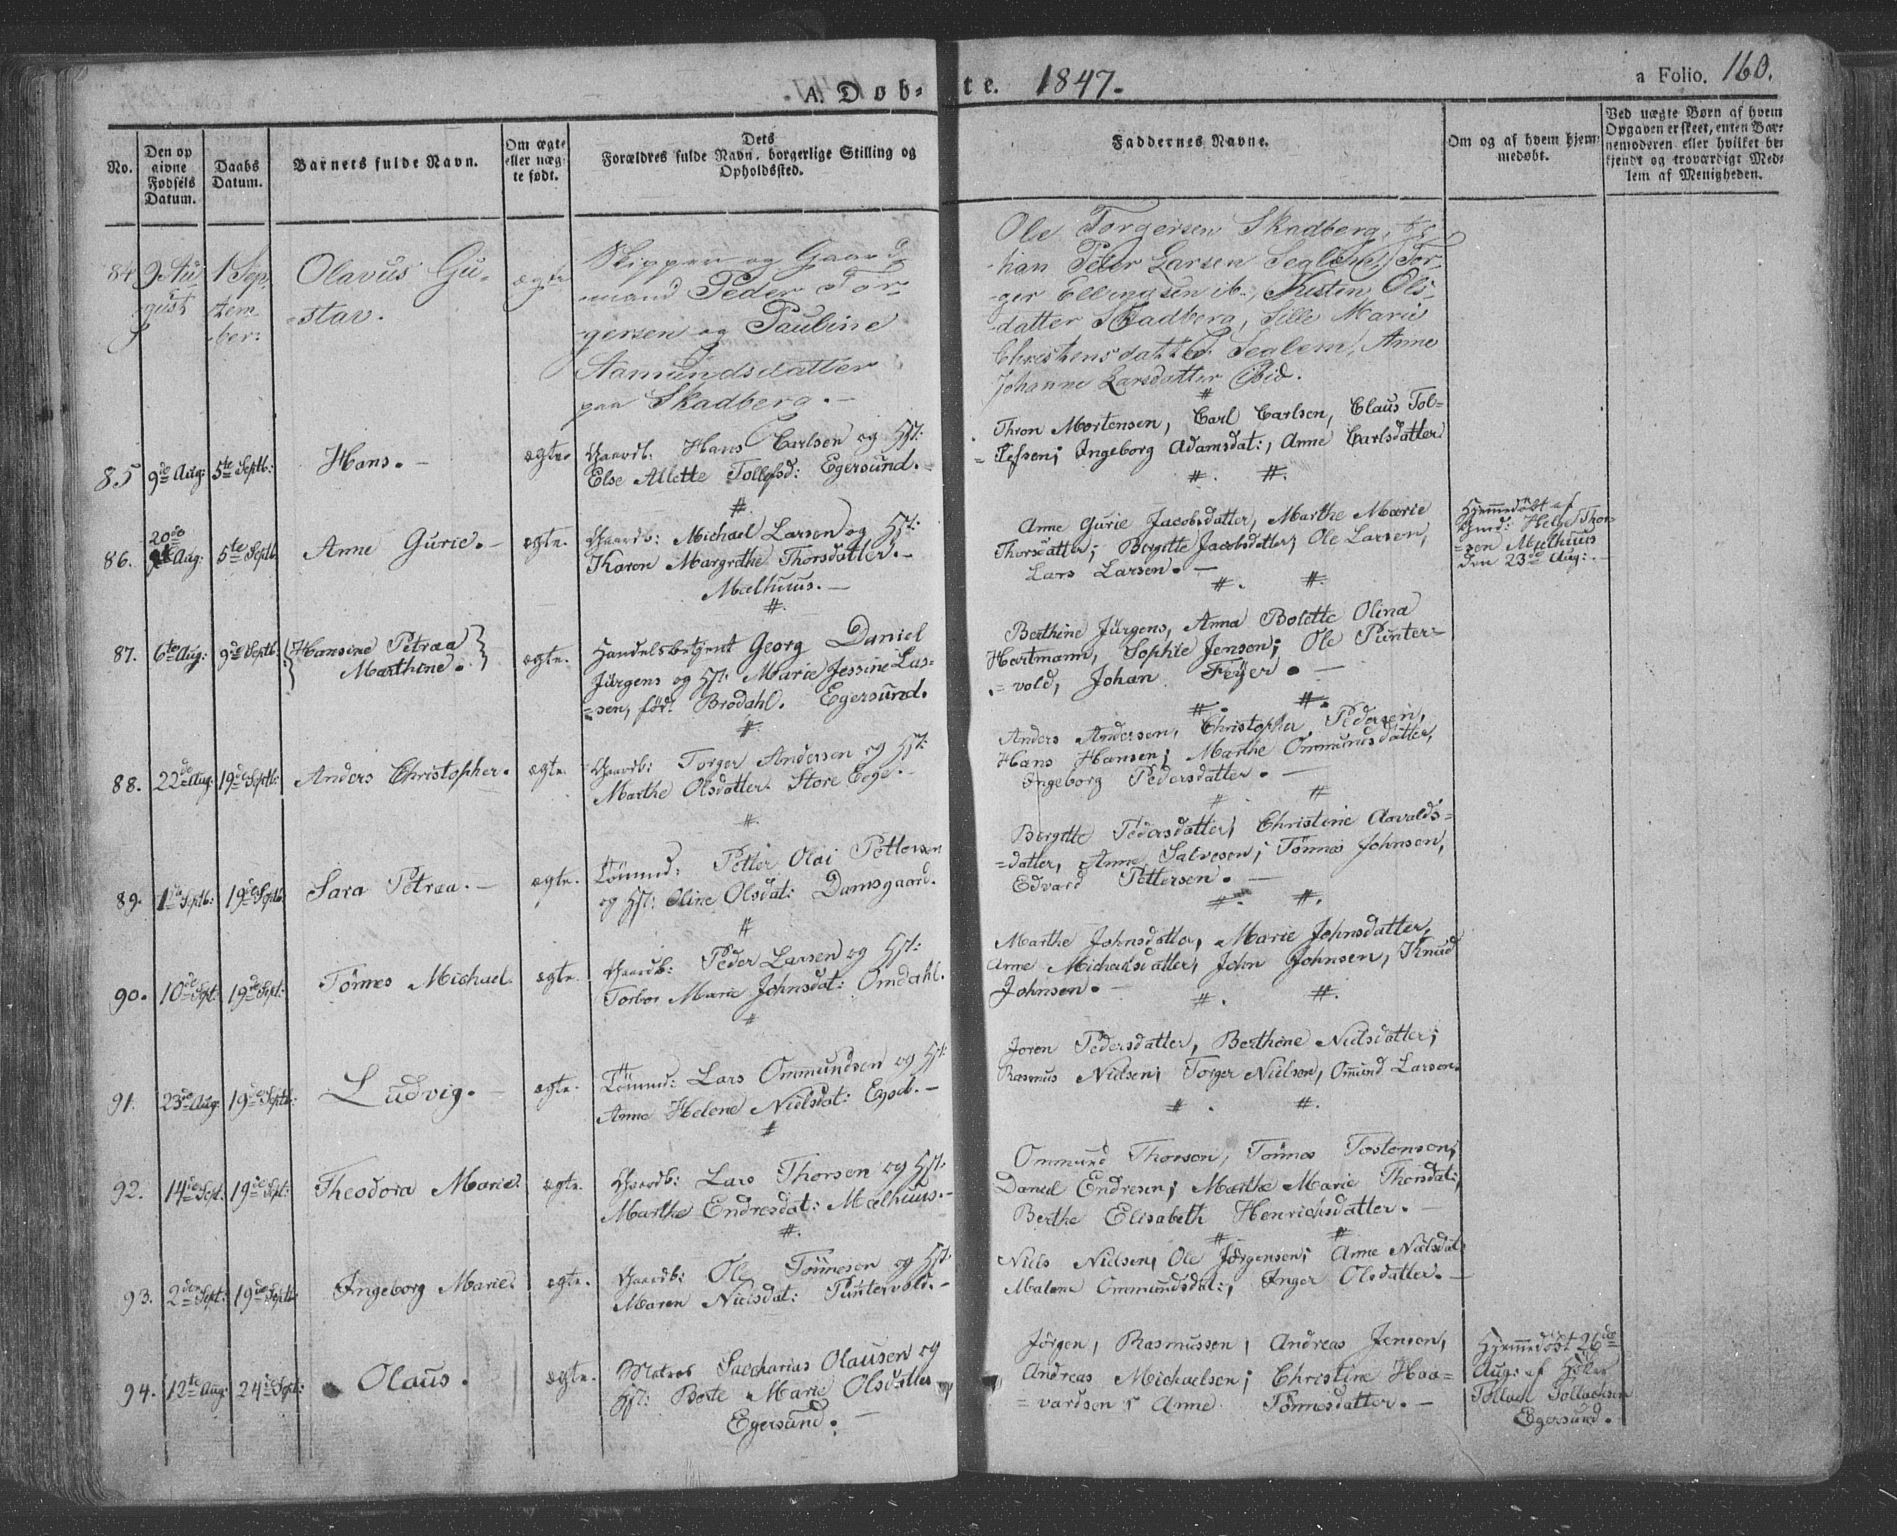 A. Døb- te. 1847.
a Folio. 160.
No.
Den op
givne
Fødsels
Datum.
Daabs
Datum.
Barnets fulde Navn.
Om ægte
eller uæg-
te født.
Dets
Forældres fulde Navn, borgerlige Stilling og
Opholdssted.
Faddernes Navne.
Om og af hvem hjem-
medøbt.
Ved uægte Børn af hvem
Opgaven er skeet, enten Bar-
nemoderen eller hvilket be-
kjendt og troværdigt Med-
lem af Menigheden.
84 9 Au-
gust
1 Sep-
tem
ber:
Olavus Gu-
-stav.
ægte
Skipper og Gaard
mand Peder Tor-
gersen og Pauline
Aamundsdatter
paa Skadberg. -
Ole Torgersen Skadberg,
-han Peter Larsen Seglem, Tor-
-ger Ellingsen ib., Kisten Ols-
datter Skadberg, Sille Marie
Christensdatter Seglem, Anne
Johanne Larsdatter Ibid.
85 9de Aug: 5te Septb: Hans. - ægte.
Gaardb: Hans Carlsen og Hst:
Else Allette Tollefsd: Egersund. -
Thron Mortensen, Carl Carlsen, Claus Tol-
= lefsen; Ingeborg Adamsdat:, Anne Carlsdatter
86. 20de
Aug: 5te Septb: Anne Gurie. - ægte.
Gaardb: Michael Larsen og Hst:
Karen Margrethe Thorsdatter. -
Mælhuus. -
Anne Gurie Jacobsdatter, Marthe Marie
Thorsdatter; Bergitte Jacobsdatter; Ole Larsen,
Lars Larsen. -
Hjemmedøbt af
Gmd: Helge Thor-
=sen Mælhuus
den 23de Aug:
87. 6te Aug: 9de Septb: {Hansine Petraa
Marthine.} ægte.
Handelsbetjent Georg Daniel
Jürgens og Hst: Marie Jessine Las-
=sen, fød: Brodahl. Egersund.
Berthine Jürgens, Anna Bolette Olina
Hartmann, Sophie Jensen; Ole Punter-
=vold, Johan Feyer. -
88. 22de Aug: 19de Septb: Anders Christopher. ægte.
Gaardb: Torger Andersen og Hst:
Marthe Olsdatter. Store Eege. -
Anders Andersen, Christopher Pedersen,
Hans Hansen; Marthe Ommundsdatter,
Ingeborg Pedersdatter. -
89. 1ste Septb: 19de Septb: Sara Petraa. - ægte.
Tømmd: Petter Olai Pettersen
og Hst: Oline Olsdat: Damsgaard.
Bergitte Pedersdatter; Christine Aavalds-
=datter, Anne Salvesen; Tønnes Johnsen,
Edvard Pettersen. -
90. 10de Sept: 19de Sept: Tønnes Michael. ægte.
Gaardb: Peder Larsen og Hst:
Torbor Marie Johnsdat: Omdahl.
Marthe Johnsdatter, Marie Johnsdatter,
Anne Michaelsdatter, John Johnsen, Knud
Johnsen. -
91. 23de Aug: 19de Septb: Ludvig. - ægte.
Tømmd: Lars Ommundsen og Hst:
Anne Helene Nielsdat: Eged. -
Joren Pedersdatter, Berthine Nielsdatter;
Rasmus Nielsen; Torger Nielsen, Omund Larsen.
92. 14de Sept. 19de Sept: Theodora Marie. ægte.
Gaardb: Lars Thorsen og Hst:
Marthe Endresdat: Mælhuus. -
Ommund Thorsen, Tønnes Tostensen;
Daniel Endresen; Marthe Marie Thorsdat:,
Berthe Elisabeth Henrichsdatter. -
93. 2den Sept: 19de Septb: Ingeborg Marie. ægte.
Gaardb: Ole Tønnesen og Hst:
Maren Nielsdat: Puntervold. -
Niels Nielsen, Ole Jørgensen; Anne Nielsdat:
Malene Ommundsdat:, Inger Olsdatter. -
94. 12te Aug: 24de Sept: Olaus. ægte.
Matros Saccharias Olausen og
Hst: Berte Marie Olsdatter
Egersund. -
Jørgen, Rasmussen, Andreas Jensen,
Andreas Michaelsen; Christine Haa-
=vardsen; Anne Tønnesdatter. -
Hjemmedøbt 26de
Aug: af
Tollach Tollachsen
Egersund.